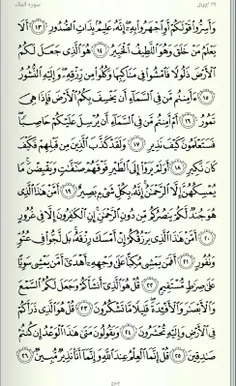 سورة الملك
وَأَسِرُّوا۟ قَوْلَكُمْ أَوِ ٱجْهَرُوا۟ بِهِۦٓ إِنَّهُۥ عَلِيمٌۢ بِذَاتِ ٱلصُّدُورِ ١٣ أَلَا
يَعْلَمُ مَنْ خَلَقَ وَهُوَ ٱللَّطِيفُ ٱلْخَبِيرُ ١٤ هُوَ ٱلَّذِى جَعَلَ لَكُمُ
ٱلْأَرْضَ ذَلُولًا فَٱمْشُوا۟ فِى مَنَاكِبِهَا وَكُلُوا۟ مِن رِّزْقِهِۦ وَإِلَيْهِ ٱلنُّشُورُ
١٥ ءَأَمِنتُم مَّن فِى ٱلسَّمَآءِ أَن يَخْسِفَ بِكُمُ ٱلْأَرْضَ فَإِذَا هِىَ
تَمُورُ ١٦ أَمْ أَمِنتُم مَّن فِى ٱلسَّمَآءِ أَن يُرْسِلَ عَلَيْكُمْ حَاصِبًا
فَسَتَعْلَمُونَ كَيْفَ نَذِيرِ ١٧ وَلَقَدْ كَذَّبَ ٱلَّذِينَ مِن قَبْلِهِمْ فَكَيْفَ
كَانَ نَكِيرِ ١٨ أَوَلَمْ يَرَوْا۟ إِلَى ٱلطَّيْرِ فَوْقَهُمْ صَٰٓفَّٰتٍ وَيَقْبِضْنَ مَا
يُمْسِكُهُنَّ إِلَّا ٱلرَّحْمَٰنُ إِنَّهُۥ بِكُلِّ شَىْءٍۭ بَصِيرٌ ١٩ أَمَّنْ هَٰذَا ٱلَّذِى
هُوَ جُندٌ لَّكُمْ يَنصُرُكُم مِّن دُونِ ٱلرَّحْمَٰنِ إِنِ ٱلْكَٰفِرُونَ إِلَّا فِى غُرُورٍ
٢٠ أَمَّنْ هَٰذَا ٱلَّذِى يَرْزُقُكُمْ إِنْ أَمْسَكَ رِزْقَهُۥ بَل لَّجُّوا۟ فِى عُتُوٍّ
وَنُفُورٍ ٢١ أَفَمَن يَمْشِى مُكِبًّا عَلَىٰ وَجْهِهِۦٓ أَهْدَىٰٓ أَمَّن يَمْشِى سَوِيًّا
عَلَىٰ صِرَٰطٍ مُّسْتَقِيمٍ ٢٢ قُلْ هُوَ ٱلَّذِىٓ أَنشَأَكُمْ وَجَعَلَ لَكُمُ ٱلسَّمْعَ
وَٱلْأَبْصَٰرَ وَٱلْأَفْـِٔدَةَ قَلِيلًا مَّا تَشْكُرُونَ ٢٣ قُلْ هُوَ ٱلَّذِى ذَرَأَكُمْ
فِى ٱلْأَرْضِ وَإِلَيْهِ تُحْشَرُونَ ٢٤ وَيَقُولُونَ مَتَىٰ هَٰذَا ٱلْوَعْدُ إِن كُنتُمْ
صَٰدِقِينَ ٢٥ قُلْ إِنَّمَا ٱلْعِلْمُ عِندَ ٱللَّهِ وَإِنَّمَآ أَنَا۠ نَذِيرٌ مُّبِينٌ ٢٦